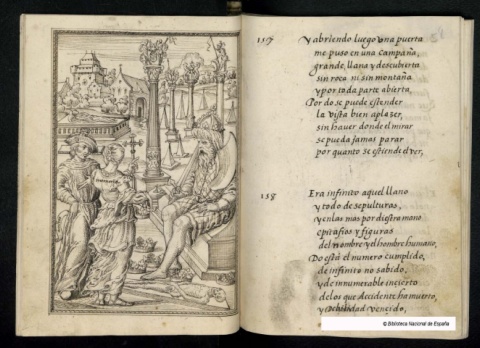 157
Y abriendo luego una puerta
me puso en una campaña,
grande, llana y descubierta
sin roca ni sin montaña
y por toda parte abierta,
Por do se puede estender
la vista bien a plazer,
sin haver donde el mirar
se pueda jamas parar
por quanto se estiende el ver,
158
Era infinito aquel llano
y todo de sepulturas,
y en las mas por diestra mano
epitafios y figuras
del nombre y del hombre humano,
Do està el numero cumplido,
de infinito no sabido,
y de innumerable incierto
de los que accidente ha muerto,
y debilidad vencido,
© Biblioteca Nacional de España